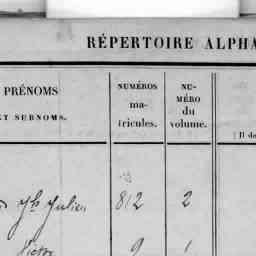 RÉPERTOIRE ALPHA
PRÉNOMS
ET SURNOMS.
NUMÉROS
ma-
tricules.
NU-
MÉRO
du
volume.
Jh Julien 812 2
Victor 9 1